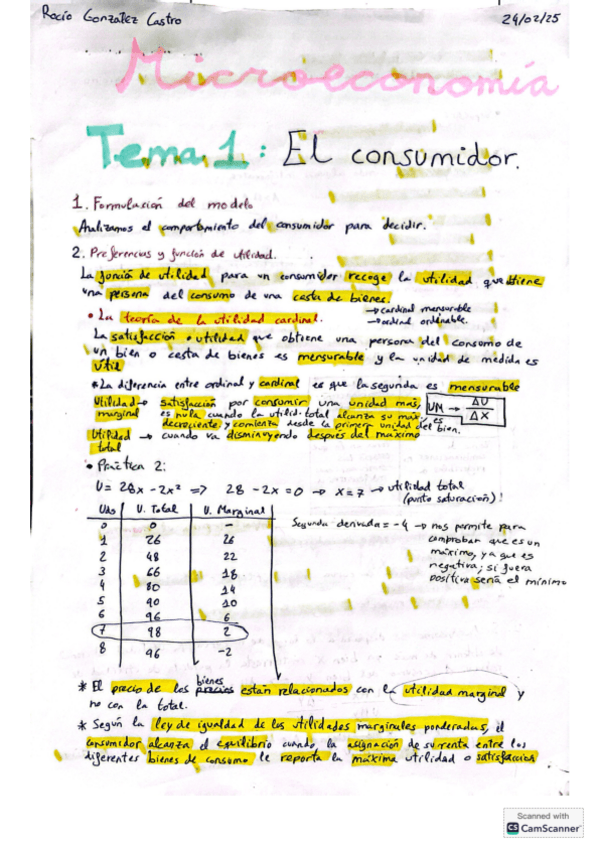 Rocío González Castro 24/02/25
Microeconomía
Tema 1: El consumidor.
1. Formulasión del modelo
Analizamos el comportamiento del consumidor para decidir.
2. Preferencias y función de utilidad.
La función de utilidad para un consumidor recoge la utilidad que obtiene
una persona del consumo de una cesta de bienes.
• La teoría de la utilidad cardinal. → cardinal mensurable
→ ordinal ordenable.
La satisfacción o utilidad que obtiene una persona del consumo de
un bien o cesta de bienes es mensurable y la unidad de medida es
útil
* La diferencia entre ordinal y cardinal es que la segunda es mensurable
Utilidad marginal → satisfacción por consumir una unidad mas, UM → ΔU/ΔX
es nula cuando la utilid. total alcanza su max, es
decreciente y comienza desde la primera unidad del bien.
Utilidad total → cuando va disminuyendo después del máximo
• Práctica 2:
U = 28x - 2x² => 28 - 2x = 0 → x = 7 → utilidad total
(punto saturación)!
Uds U. Total U. Marginal
0 0 -
1 26 26
2 48 22
3 66 18
4 80 14
5 90 10
6 96 6
7 98 2
8 96 -2
Segunda derivada = -4 → nos permite para
comprobar que es un
máximo, ya que es
negativa; si fuera
positiva sería el mínimo
* El precio de los precios bienes están relacionados con la utilidad marginal y
no con la total.
* Según la ley de igualdad de las utilidades marginales ponderadas, el
consumidor alcanza el equilibrio cuando la asignación de su renta entre los
diferentes bienes de consumo le reporta la máxima utilidad o satisfacción
Scanned with
CS CamScanner